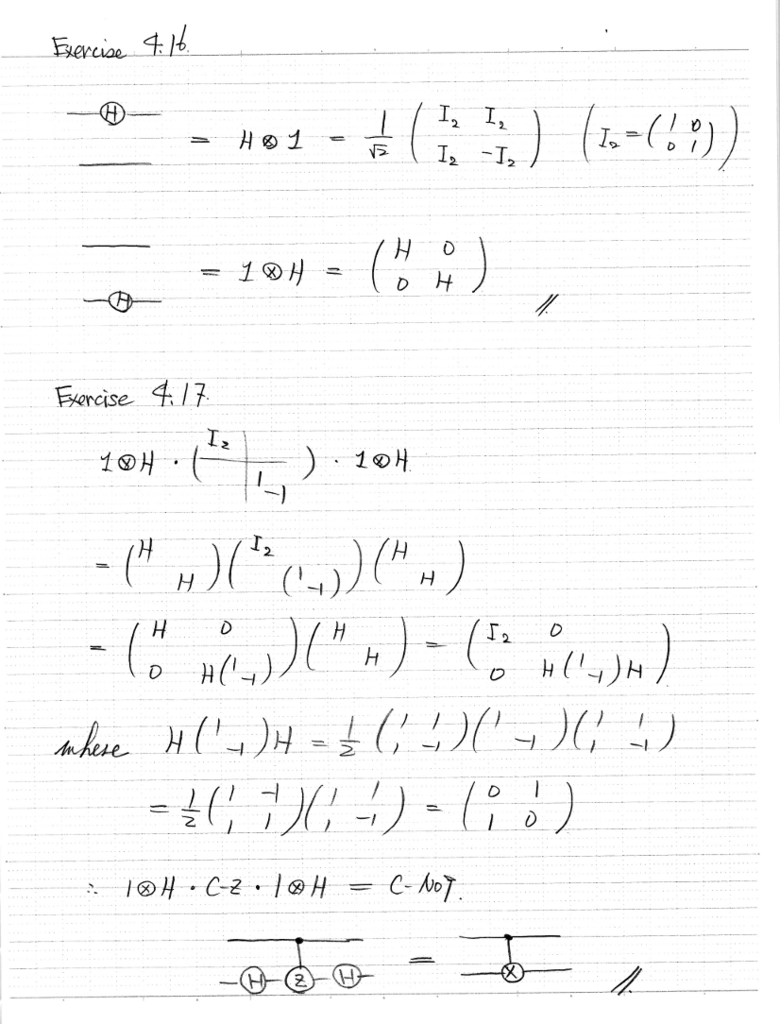 Exercise 4.16
H
= H ⊗ 1 = 1/√2 ( I₂ I₂ ; I₂ -I₂ ) ( I₂ = ( 1 0 ; 0 1 ) )
= 1 ⊗ H = ( H 0 ; 0 H ) //
H
Exercise 4.17.
1⊗H · ( I₂ | ; | 1 -1 ) · 1⊗H
= ( H H ) ( I₂ ( 1 -1 ) ) ( H H )
= ( H 0 ; 0 H( 1 -1 ) ) ( H H ) = ( I₂ 0 ; 0 H( 1 -1 )H )
where H( 1 -1 )H = 1/2 ( 1 1 ; 1 -1 ) ( 1 -1 ) ( 1 1 ; 1 -1 )
= 1/2 ( 1 -1 ; 1 1 ) ( 1 1 ; 1 -1 ) = ( 0 1 ; 1 0 )
∴ 1⊗H · C-Z · 1⊗H = C-NOT.
H Z H = X //